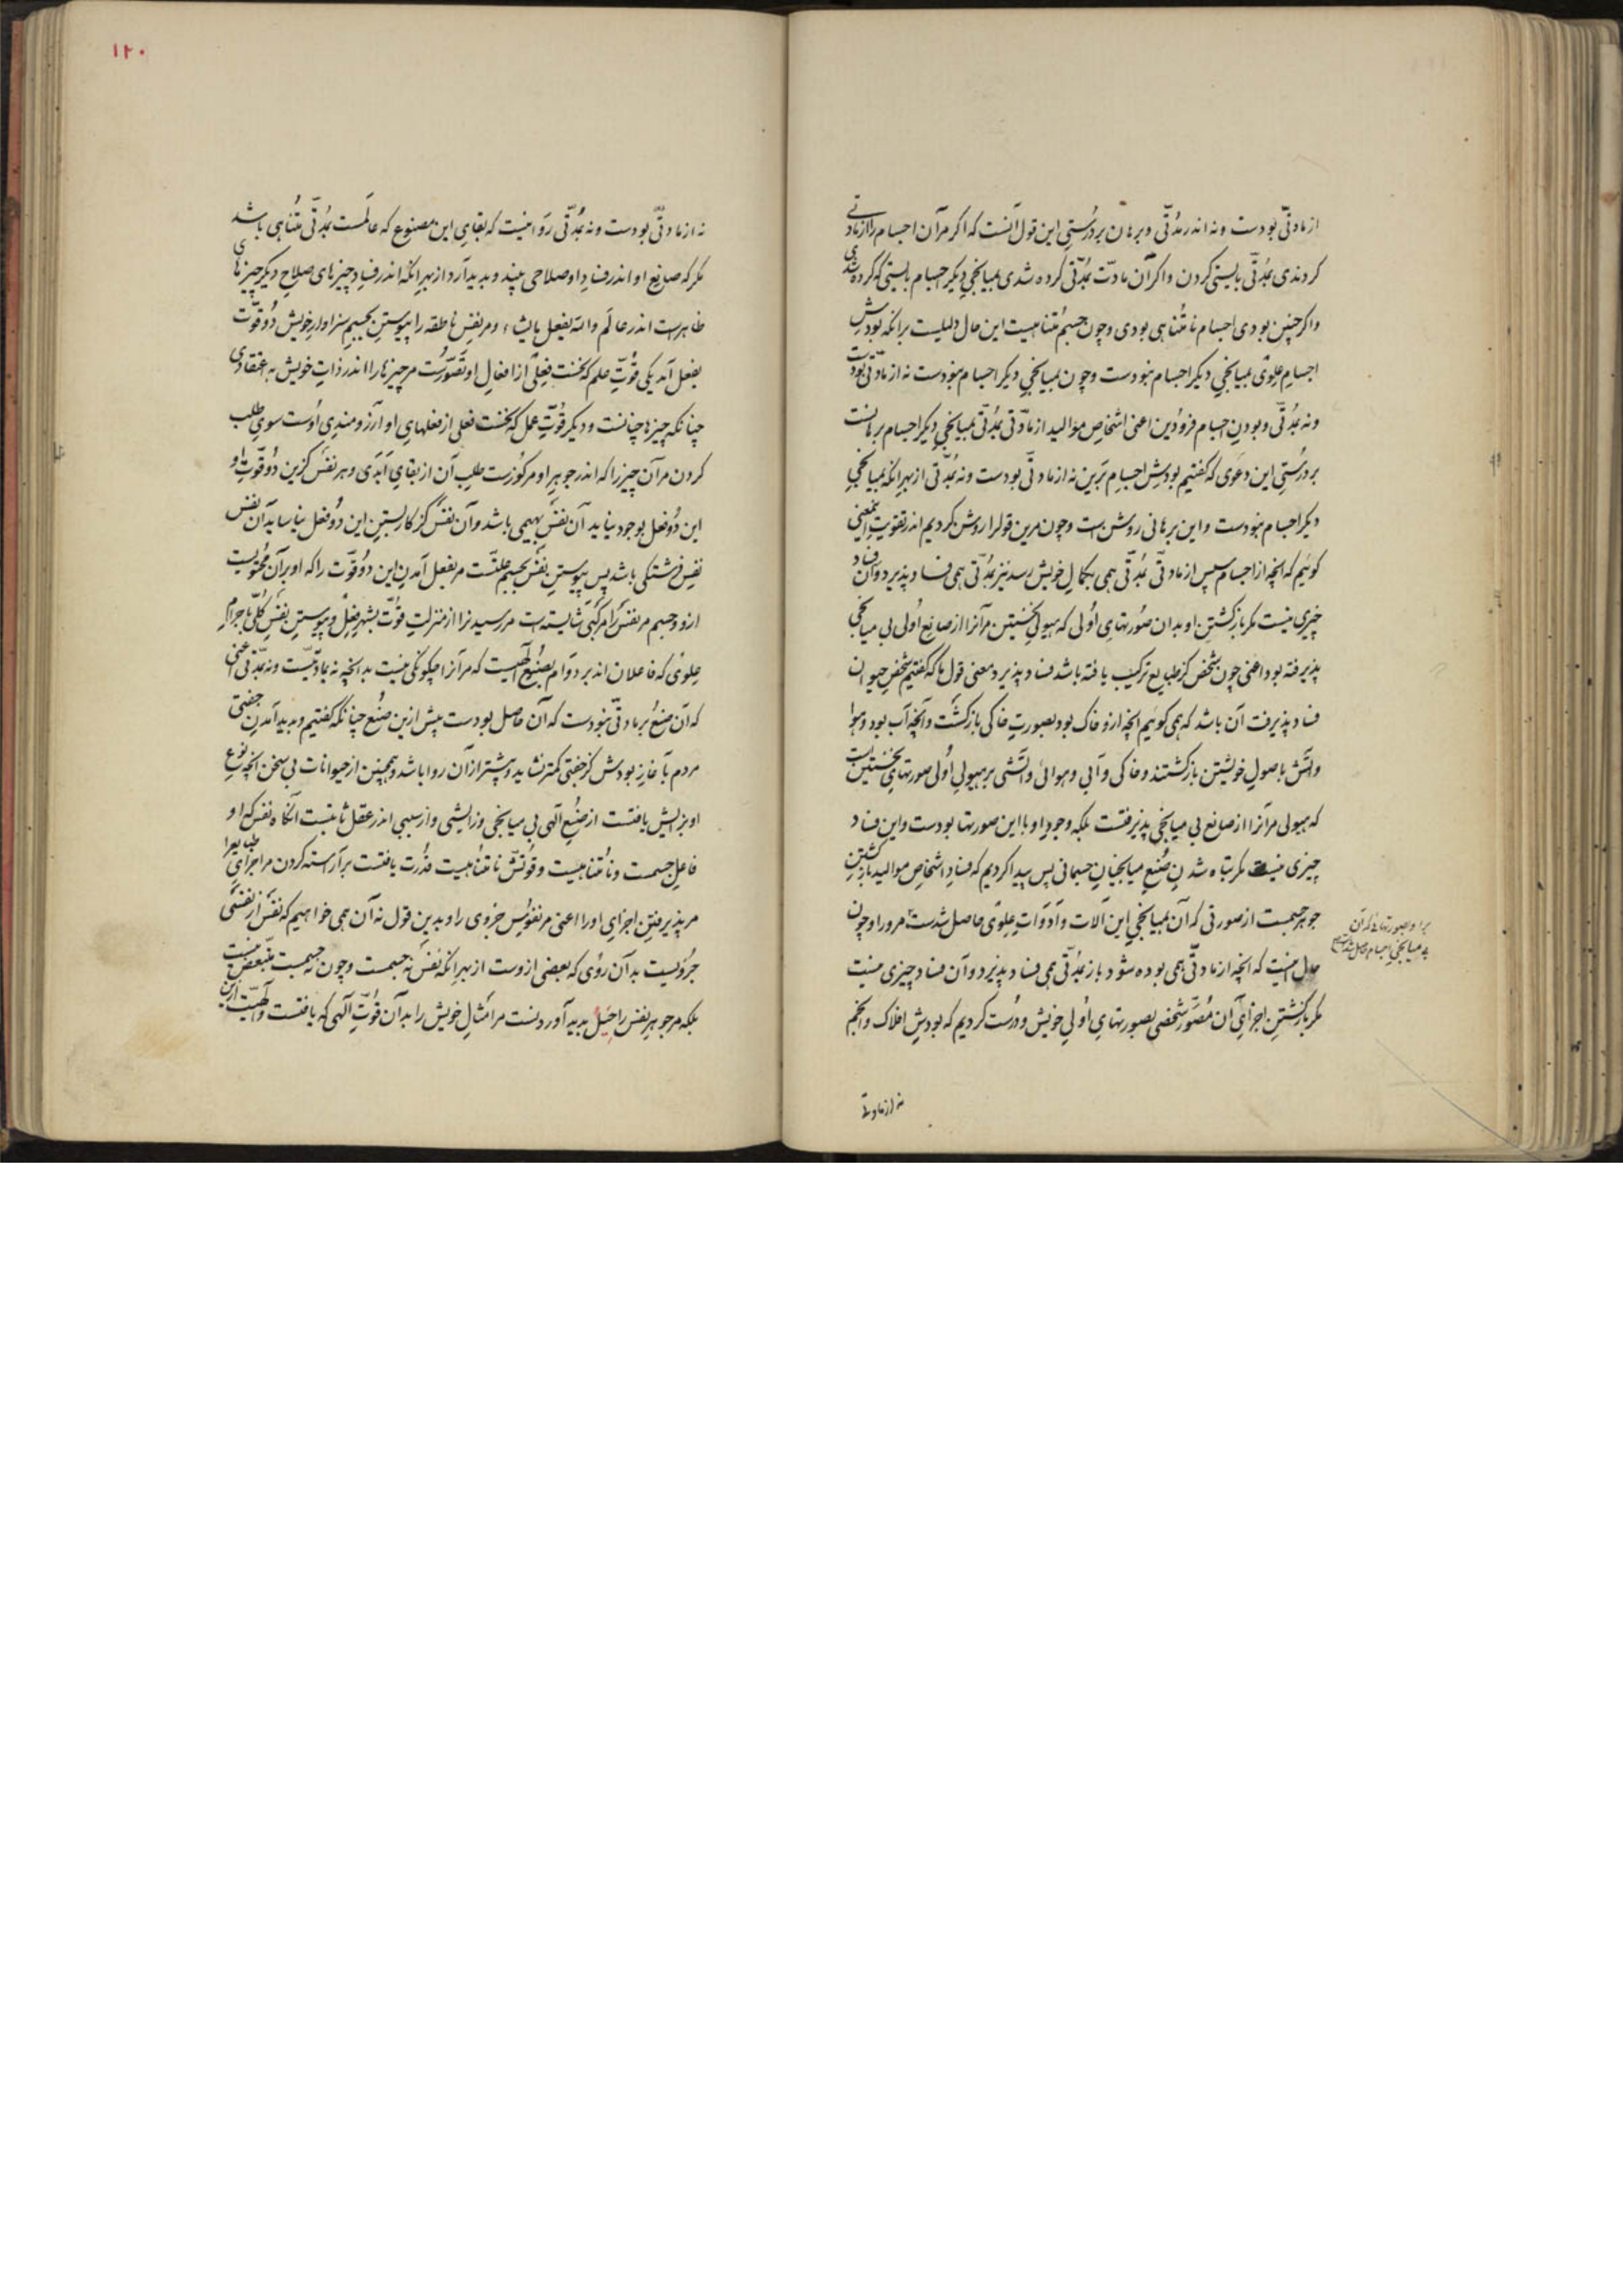 از مادتی بودست و نه اندر مدتی و برهان بر درستی این قول آنست که اگر مر آن اجسام را از مادتی
کردندی بمدتی بایستی کردن و اگر آن مادت بمدتی کرده شدی بمیانجی دیگر اجسام بایستی که کرده شدی
و اگر چنین بودی اجسام نامتناهی بودی و چون جسم متناهیست این حال دلیلست برانکه بودش
اجسام علوی بمیانجی دیگر اجسام نبودست و چون بمیانجی دیگر اجسام نبودست نه از مادتی بودست
و نه بمدتی و بودن اجسام فرودین اعنی اشخاص موالید از مادتی بمدتی بمیانجی دیگر اجسام برهانست
بر درستی این دعوی که گفتیم بودش اجسام برین نه از مادتی بودست و نه بمدتی از بهر انکه بمیانجی
دیگر اجسام نبودست و این برهانی روشن است و چون مرین قول را روشن کردیم اندر تقویت این معنی
گوئیم که انچه از اجسام سپس از مادتی بمدتی همی بکمال خویش رسد نیز بمدتی همی فساد پذیرد و آن فساد
چیزی نیست مگر باز گشتن او بدان صورتهای اولی که هیولی نخستین مر آنرا از صانع اولی بی میانجی
پذیرفته بود اعنی چون شخص کز طبایع ترکیب یافته باشد فساد پذیرد معنی قول ما که گفتیم شخص حیوان
فساد پذیرفت آن باشد که همی گوئیم انچه ازو خاک بود بصورت خاکی باز گشت و آنچه آب بود و هوا
و آتش باصول خویشتن باز گشتند و خاکی و آبی و هوائی و آتشی بر هیولی اولی صورتهای نخستین است
که هیولی مر آنرا از صانع بی میانجی پذیرفتست بلکه وجود او با این صورتها بودست و این فساد
چیزی نیست مگر تباه شدن صنع میانجیان جسمانی پس پیدا کردیم که فساد اشخاص موالید باز گشتن
جوهر جسمست از صورتی که آن بمیانجی این آلات و ادوات علوی حاصل شدست مرورا و چون
حال اینست که انچه از مادتی همی بوده شود باز بمدتی همی فساد پذیرد و آن فساد چیزی نیست
مگر باز گشتن اجزای آن مصور شخصی بصورتهای اولی خویش و درست کردیم که بودش افلاک و انجم
برا و صورتهائیکه آن
بی میانجی اجسام حاصل شدست
نه از مادتی
۱۲۰
نه از مادتی بودست و نه بمدتی روا نیست که بقای این مصنوع که عالمست بمدتی متناهی باشد
مگر که صانع او اندر فساد او صلاحی بیند و پدید آرد از بهر انکه اندر فساد چیزهای صلاح دیگر چیزهای
ظاهرست اندر عالم والله یفعل ما یشاء و مر نفس ناطقه را بپیوستن بجسم سزاوار خویش دو قوت
بفعل آمد یکی قوت علم که نخست فعلی از افعال او تصورست مر چیزها را اندر ذات خویش به اعتقادی
چنانکه چیزها چنانست و دیگر قوت عمل که نخست فعلی از فعلهای او آرزومندی اوست سوی طلب
کردن مر آن چیز را که اندر جوهر او مرکوزست طلب آن از بقای ابدی و هر نفس کزین دو قوت او
این دو فعل بوجود نیاید آن نفس بهیمی باشد و آن نفس کز کار بستن این دو فعل نیاساید آن نفس
نفس فرشتگی باشد پس پیوستن نفس بجسم علتست مر بفعل آمدن این دو قوت را که او بر آن محتویست
ازو و جسم مر نفس را مرکبی شایسته است مر رسیدن را از منزلت قوت بشهر فعل و پیوستن نفس کلی باجرام
علوی که فاعلان اند بر دوام بصنع الهیست که مر آنرا چگونگی نیست بدانچه نه بمادتیست و نه بمدتی اعنی
که آن صنع بر مادتی نبودست که آن حاصل بودست پیش ازین صنع چنانکه گفتیم و پدید آمدن جفتی
مردم بآغاز بودش کز جفتی کمتر نشاید و بیشتر از آن روا باشد و همچنین از حیوانات بی سخن انچه نوع
او بزایش یافتست از صنع الهی بی میانجی و زایشی و از سببی اندر عقل ثابتست آنگاه نفس که او
فاعل جسمست و نامتناهیست و قوتش نامتناهیست قدرت یافتست بر آراسته کردن مر اجزای طبایع را
مر پذیرفتن اجزای او را اعنی مر نفوس جزوی را و بدین قول نه آن همی خواهیم که نفس از نفس کلی
جزویست بدآن روی که بعضی ازوست از بهر انکه نفس نه جسمست و چون نه جسمست متبعض نیست
بلکه مر جوهر نفس را حیل پدید آوردنست مر امثال خویش را بدآن قوت الهی که یافتست و الهیت